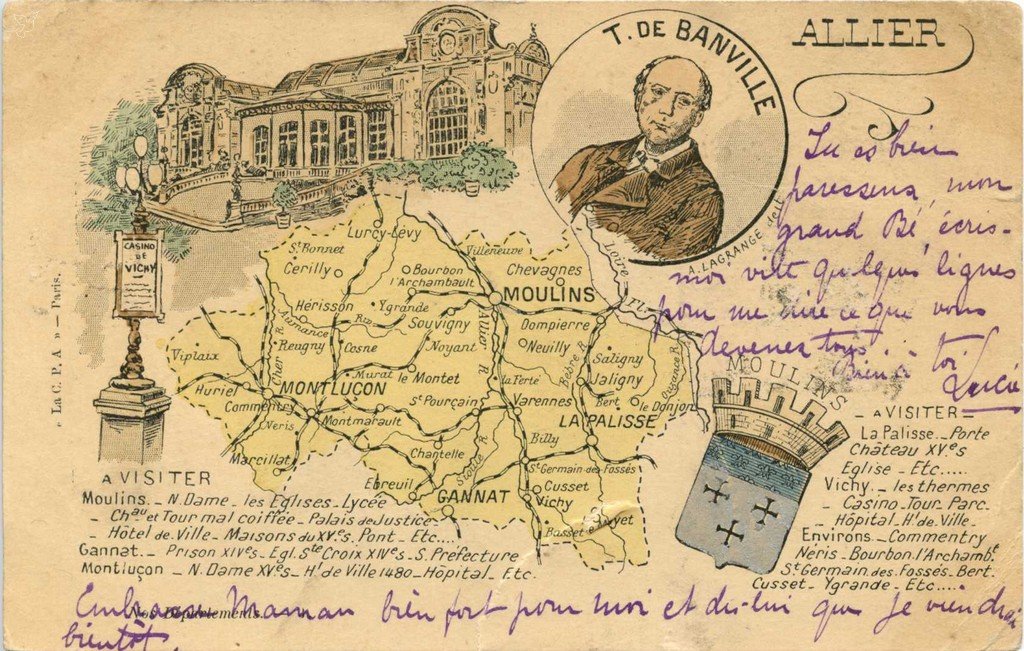 ALLIER
T. DE BANVILLE
A. LAGRANGE fecit
CASINO
DE
VICHY
« La C. P. A » — Paris.
Tu es bien
paresseux, mon
grand Bé, écris-
moi vite quelques lignes
pour me dire ce que vous
devenez tous.
Bien à toi
Lucie
Lurcy-Lévy
St Bonnet
Cerilly
Villeneuve
Bourbon
l'Archambault
Chevagnes
Loire
Fl.
MOULINS
Hérisson
Aumance
Riv.
Ygrande
Souvigny
Allier
Dompierre
Neuilly
Reugny
Cosne
Noyant
Viplaix
Cher R.
Murat
le Montet
la Ferté
Bèbre R.
Saligny
Jaligny
Huriel
MONTLUÇON
Commentry
St Pourçain
Varennes
Bert
le Donjon
Neris
Montmarault
LA PALISSE
Marcillat
Chantelle
Sioule R
Billy
St Germain-des-Fossés
Ebreuil
GANNAT
Cusset
Vichy
Busset
MOULINS
A VISITER
Moulins. _ N. Dame _ les Eglises _ Lycée
_ Chau et Tour mal coiffée _ Palais de Justice
_ Hôtel de Ville _ Maisons du XVes. Pont _ Etc....
Gannat _ Prison XIVes _ Egl. Ste Croix XIVes _ S. Préfecture
Montluçon _ N. Dame XVes _ Hl de Ville 1480 _ Hôpital. Etc.
A VISITER
La Palisse _ Porte
Château XVes
Eglise _ Etc....
Vichy _ les thermes
Casino _ Tour. Parc.
_ Hôpital. Hl de Ville _
Environs _ Commentry
Néris _ Bourbon l'Archambt
St Germain des Fossés _ Bert.
Cusset _ Ygrande _ Etc.....
Nos Départements.
Embrasse Maman bien fort pour moi et dis-lui que je viendrai
bientôt.